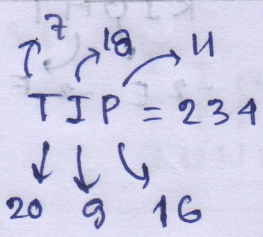 7 18 11
TIP = 234
20 9 16